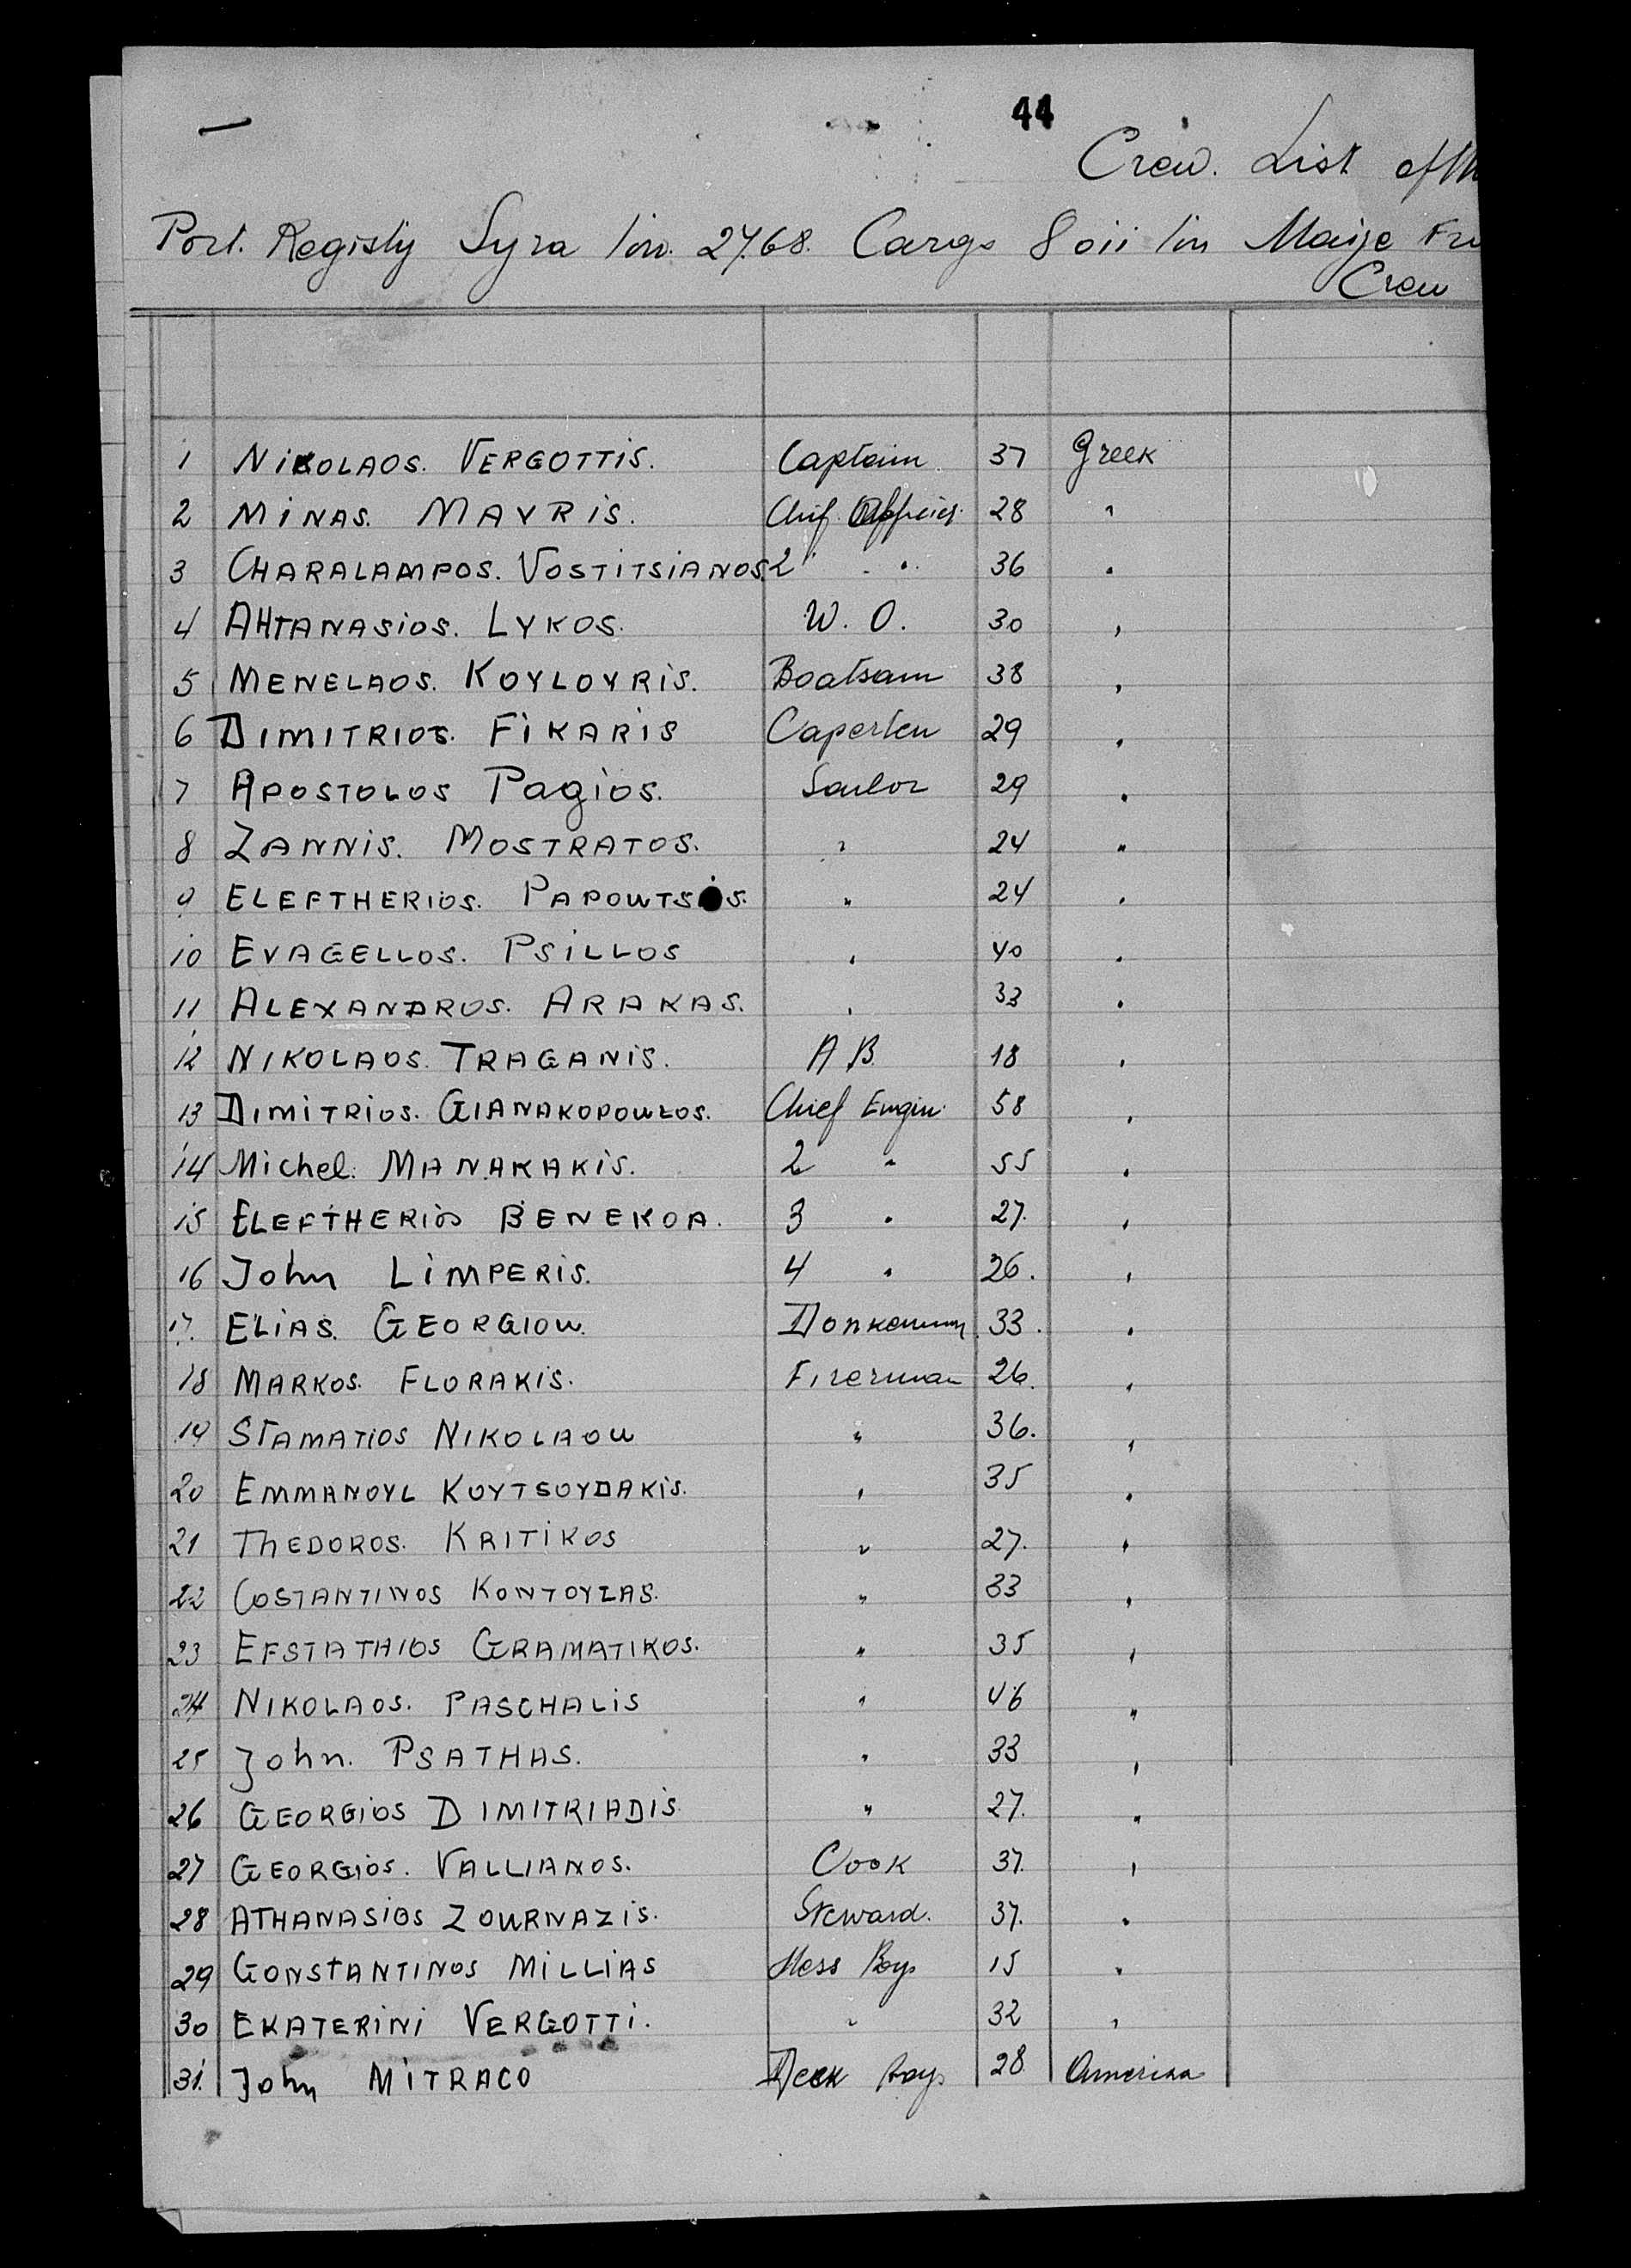 44
Crew. List of th
Port. Registy Syra Ton. 2768. Cargo 8011 Ton Maize Fro
Crew
1 NIKOLAOS. VERGOTTIS. Captain 37 Greek
2 MINAS. MAVRIS. Chif. 28 "
3 CHARALAMPOS. VOSTITSIANOS. 2 " " 36 "
4 AHTANASIOS. LYKOS. W. O. 30 "
5 MENELAOS. KOYLOYRIS. Boatsam 38 "
6 DIMITRIOS. FIKARIS Caperten 29 "
7 APOSTOLOS Pagios. Sailor 29 "
8 ZANNIS. MOSTRATOS. " 24 "
9 ELEFTHERIOS. PAPOUTSIS. " 24 "
10 EVAGELLOS. PSILLOS " 40 "
11 ALEXANDROS. ARAKAS. " 33 "
12 NIKOLAOS. TRAGANIS. A B. 18 "
13 DIMITRIOS. GIANAKOPOULOS. Chief Engin. 58 "
14 Michel. MANAKAKIS. 2 " 55 "
15 ELEFTHERIOS BENEKOA. 3 " 27. "
16 John LIMPERIS. 4 " 26. "
17. ELIAS. GEORGIOU. Donkeman 33. "
18 MARKOS. FLORAKIS. Firerman 26. "
19 STAMATIOS NIKOLAOU " 36. "
20 EMMANOYL KOYTSOYDAKIS. " 35 "
21 THEDOROS. KRITIKOS " 27. "
22 COSTANTINOS KONTOYZAS. " 33 "
23 EFSTATHIOS GRAMATIKOS. " 35 "
24 NIKOLAOS. PASCHALIS " 46 "
25 John. PSATHAS. " 33 "
26 GEORGIOS DIMITRIADIS " 27. "
27 GEORGIOS. VALLIANOS. Cook 37. "
28 ATHANASIOS ZOURNAZIS. Steward. 37. "
29 GONSTANTINOS MILLIAS Mess Boys 15 "
30 EKATERINI VERGOTTI. " 32 "
31. John MITRACO Deck Boys 28 America